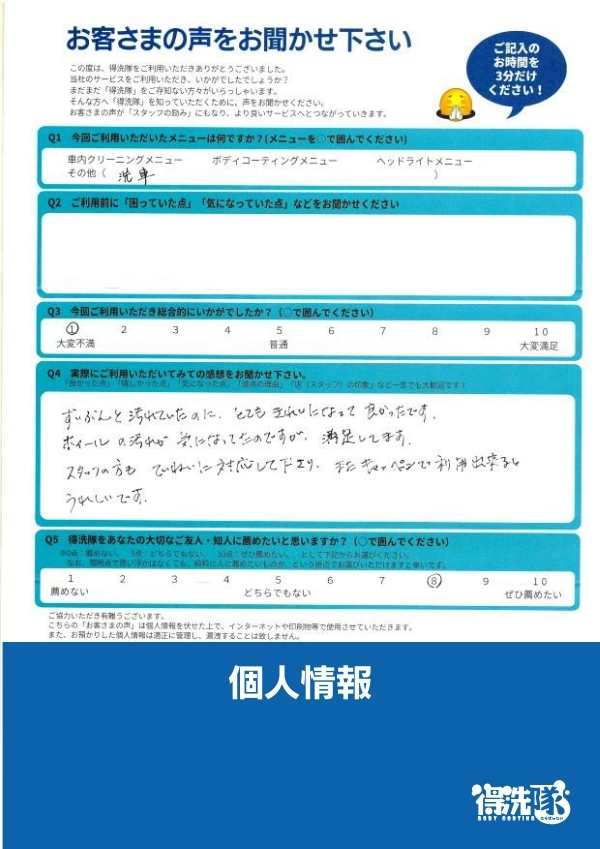 お客さまの声をお聞かせ下さい
ご記入の
お時間を
3分だけ
ください！
この度は、得洗隊をご利用いただきありがとうございました。
当社のサービスをご利用いただき、いかがでしたでしょうか？
まだまだ「得洗隊」をご存知ない方々がいらっしゃいます。
そんな方へ「得洗隊」を知っていただくために、声をお聞かせください。
お客さまの声が「スタッフの励み」にもなり、より良いサービスへとつながっていきます。
Q1 今回ご利用いただいたメニューは何ですか？(メニューを○で囲んでください)
車内クリーニングメニュー ボディコーティングメニュー ヘッドライトメニュー
その他（ 洗車 ）
Q2 ご利用前に「困っていた点」「気になっていた点」などをお聞かせください
Q3 今回ご利用いただき総合的にいかがでしたか？（○で囲んでください）
1 2 3 4 5 6 7 8 9 10
大変不満 普通 大変満足
Q4 実際にご利用いただいてみての感想をお聞かせ下さい。
「良かった点」「嬉しかった点」「気になった点」「満点の理由」「店（スタッフ）の印象」など一言でも大歓迎です！
ずいぶんと汚れていたのに、とてもきれいになって良かったです。
ホイールの汚れが気になってたのですが、満足してます。
スタッフの方も ていねいに対応して下さり、またキャンペーンで利用出来ると
うれしいです。
Q5 得洗隊をあなたの大切なご友人・知人に薦めたいと思いますか？（○で囲んでください）
1 2 3 4 5 6 7 8 9 10
薦めない どちらでもない ぜひ薦めたい
ご協力いただき有難うございます。
こちらの「お客さまの声」は個人情報を伏せた上で、インターネットや印刷物等で使用させていただきます。
また、お預かりした個人情報は適正に管理し、漏洩することは致しません。
個人情報
得洗隊